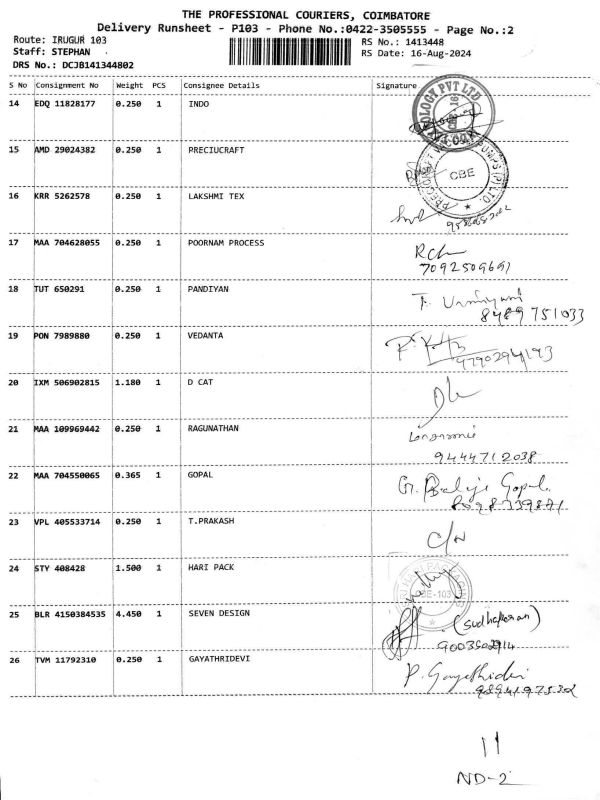 THE PROFESSIONAL COURIERS, COIMBATORE
Delivery Runsheet - P103 - Phone No.:0422-3505555 - Page No.:2
Route: IRUGUR 103 RS No.: 1413448
Staff: STEPHAN RS Date: 16-Aug-2024
DRS No.: DCJB141344802
S No Consignment No Weight PCS Consignee Details Signature
14 EDQ 11828177 0.250 1 INDO
15 AMD 29024382 0.250 1 PRECIUCRAFT
CBE
16 KRR 5262578 0.250 1 LAKSHMI TEX
17 MAA 704628055 0.250 1 POORNAM PROCESS
7092509691
18 TUT 650291 0.250 1 PANDIYAN
8489751033
19 PON 7989880 0.250 1 VEDANTA
20 IXM 506902815 1.180 1 D CAT
21 MAA 109969442 0.250 1 RAGUNATHAN
9444712038
22 MAA 704550065 0.365 1 GOPAL
G. Balaji Gopal.
23 VPL 405533714 0.250 1 T.PRAKASH
C/N
24 STY 408428 1.500 1 HARI PACK
25 BLR 4150384535 4.450 1 SEVEN DESIGN
(Sudhakaran)
26 TVM 11792310 0.250 1 GAYATHRIDEVI
P. Gayathidevi
11
ND-2